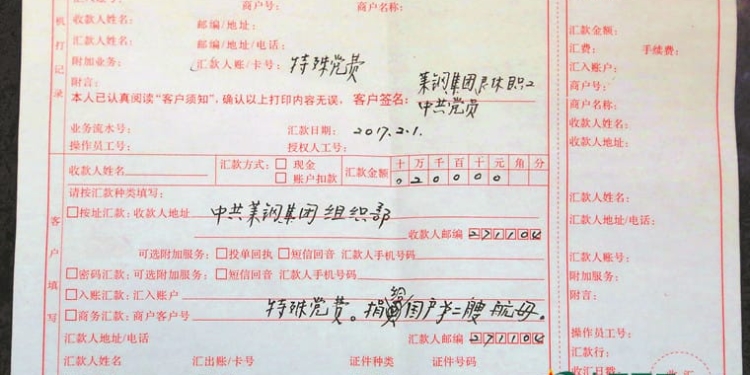 商户号： 商户名称：
收款人姓名： 邮编/地址：
汇款人姓名： 邮编/地址/电话：
附加业务： 汇款人账/卡号： 特殊党费
附言： 莱钢集团退休职工
本人已认真阅读“客户须知”，确认以上打印内容无误，客户签名： 中共党员
业务流水号： 汇款日期： 2017.2.1.
操作员工号： 授权人工号：
机打记录
收款人姓名 汇款方式： 现金 账户扣款 汇款金额 十 万 千 百 十 元 角 分
0 2 0 0 0 0
请按汇款种类填写：
按址汇款：收款人地址 中共莱钢集团组织部
收款人邮编 271104
可选附加服务： 投单回执 短信回音 汇款人手机号码
密码汇款：可选附加服务： 短信回音 汇款人手机号码
入账汇款：汇入账户
商务汇款：商户客户号 特殊党费。捐给国产第二艘航母。
汇款人地址/电话 汇款人邮编 271104
汇款人姓名 汇出账/卡号 证件种类 证件号码
客户填写
汇款金额：
汇费： 手续费：
汇入账户：
商户号：
商户名称：
收款人姓名：
收款人地址：
汇款人姓名：
汇款人地址/电话：
汇款人账号：
附加服务：
附言：
操作员工号：
汇款行：
收汇日戳